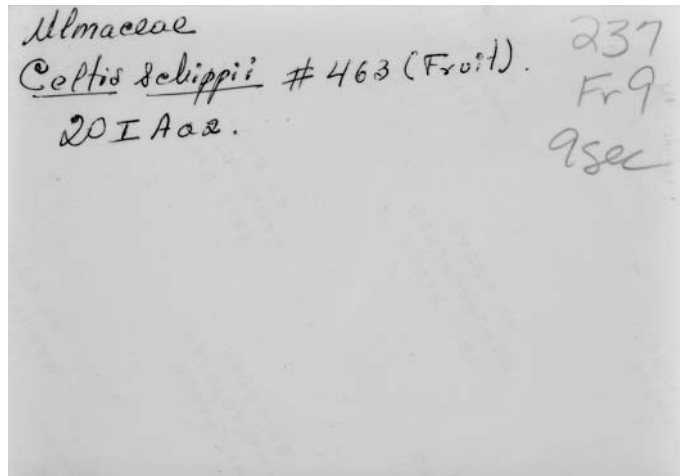 Ulmaceae
Celtis schippii # 463 (Fruit).
20 I A02.
237
Fr 9
9sec